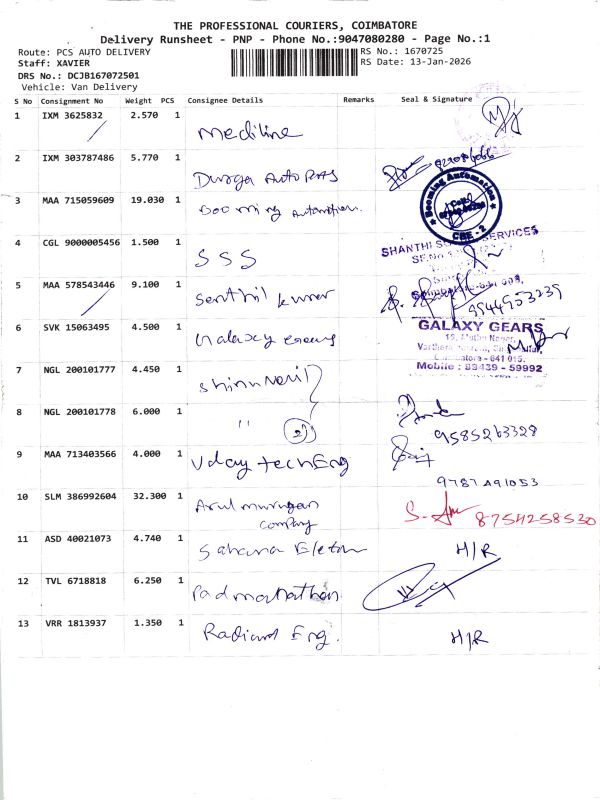 THE PROFESSIONAL COURIERS, COIMBATORE
Delivery Runsheet - PNP - Phone No.:9047080280 - Page No.:1
Route: PCS AUTO DELIVERY
RS No.: 1670725
Staff: XAVIER
RS Date: 13-Jan-2026
DRS No.: DCJB167072501
Vehicle: Van Delivery
S No Consignment No Weight PCS Consignee Details Remarks Seal & Signature
1 IXM 3625832 2.570 1 Mediline
2 IXM 303787486 5.770 1 Durga Auto
3 MAA 715059609 19.030 1 Booming Automation
Booming Automation
CBE - 2
4 CGL 9000005456 1.500 1 SSS
SHANTHI SERVICES
5 MAA 578543446 9.100 1 Senthil kumar
9944953239
6 SVK 15063495 4.500 1 Galaxy Gears
GALAXY GEARS
Mobile : 89439 - 59992
7 NGL 200101777 4.450 1
8 NGL 200101778 6.000 1 " (2)
9585263328
9 MAA 713403566 4.000 1 Uday tech Eng
9787491053
10 SLM 386992604 32.300 1 Arul murugan
company
8754258530
11 ASD 40021073 4.740 1 Sahana H/R
12 TVL 6718818 6.250 1
13 VRR 1813937 1.350 1 Radiant Eng. H/R